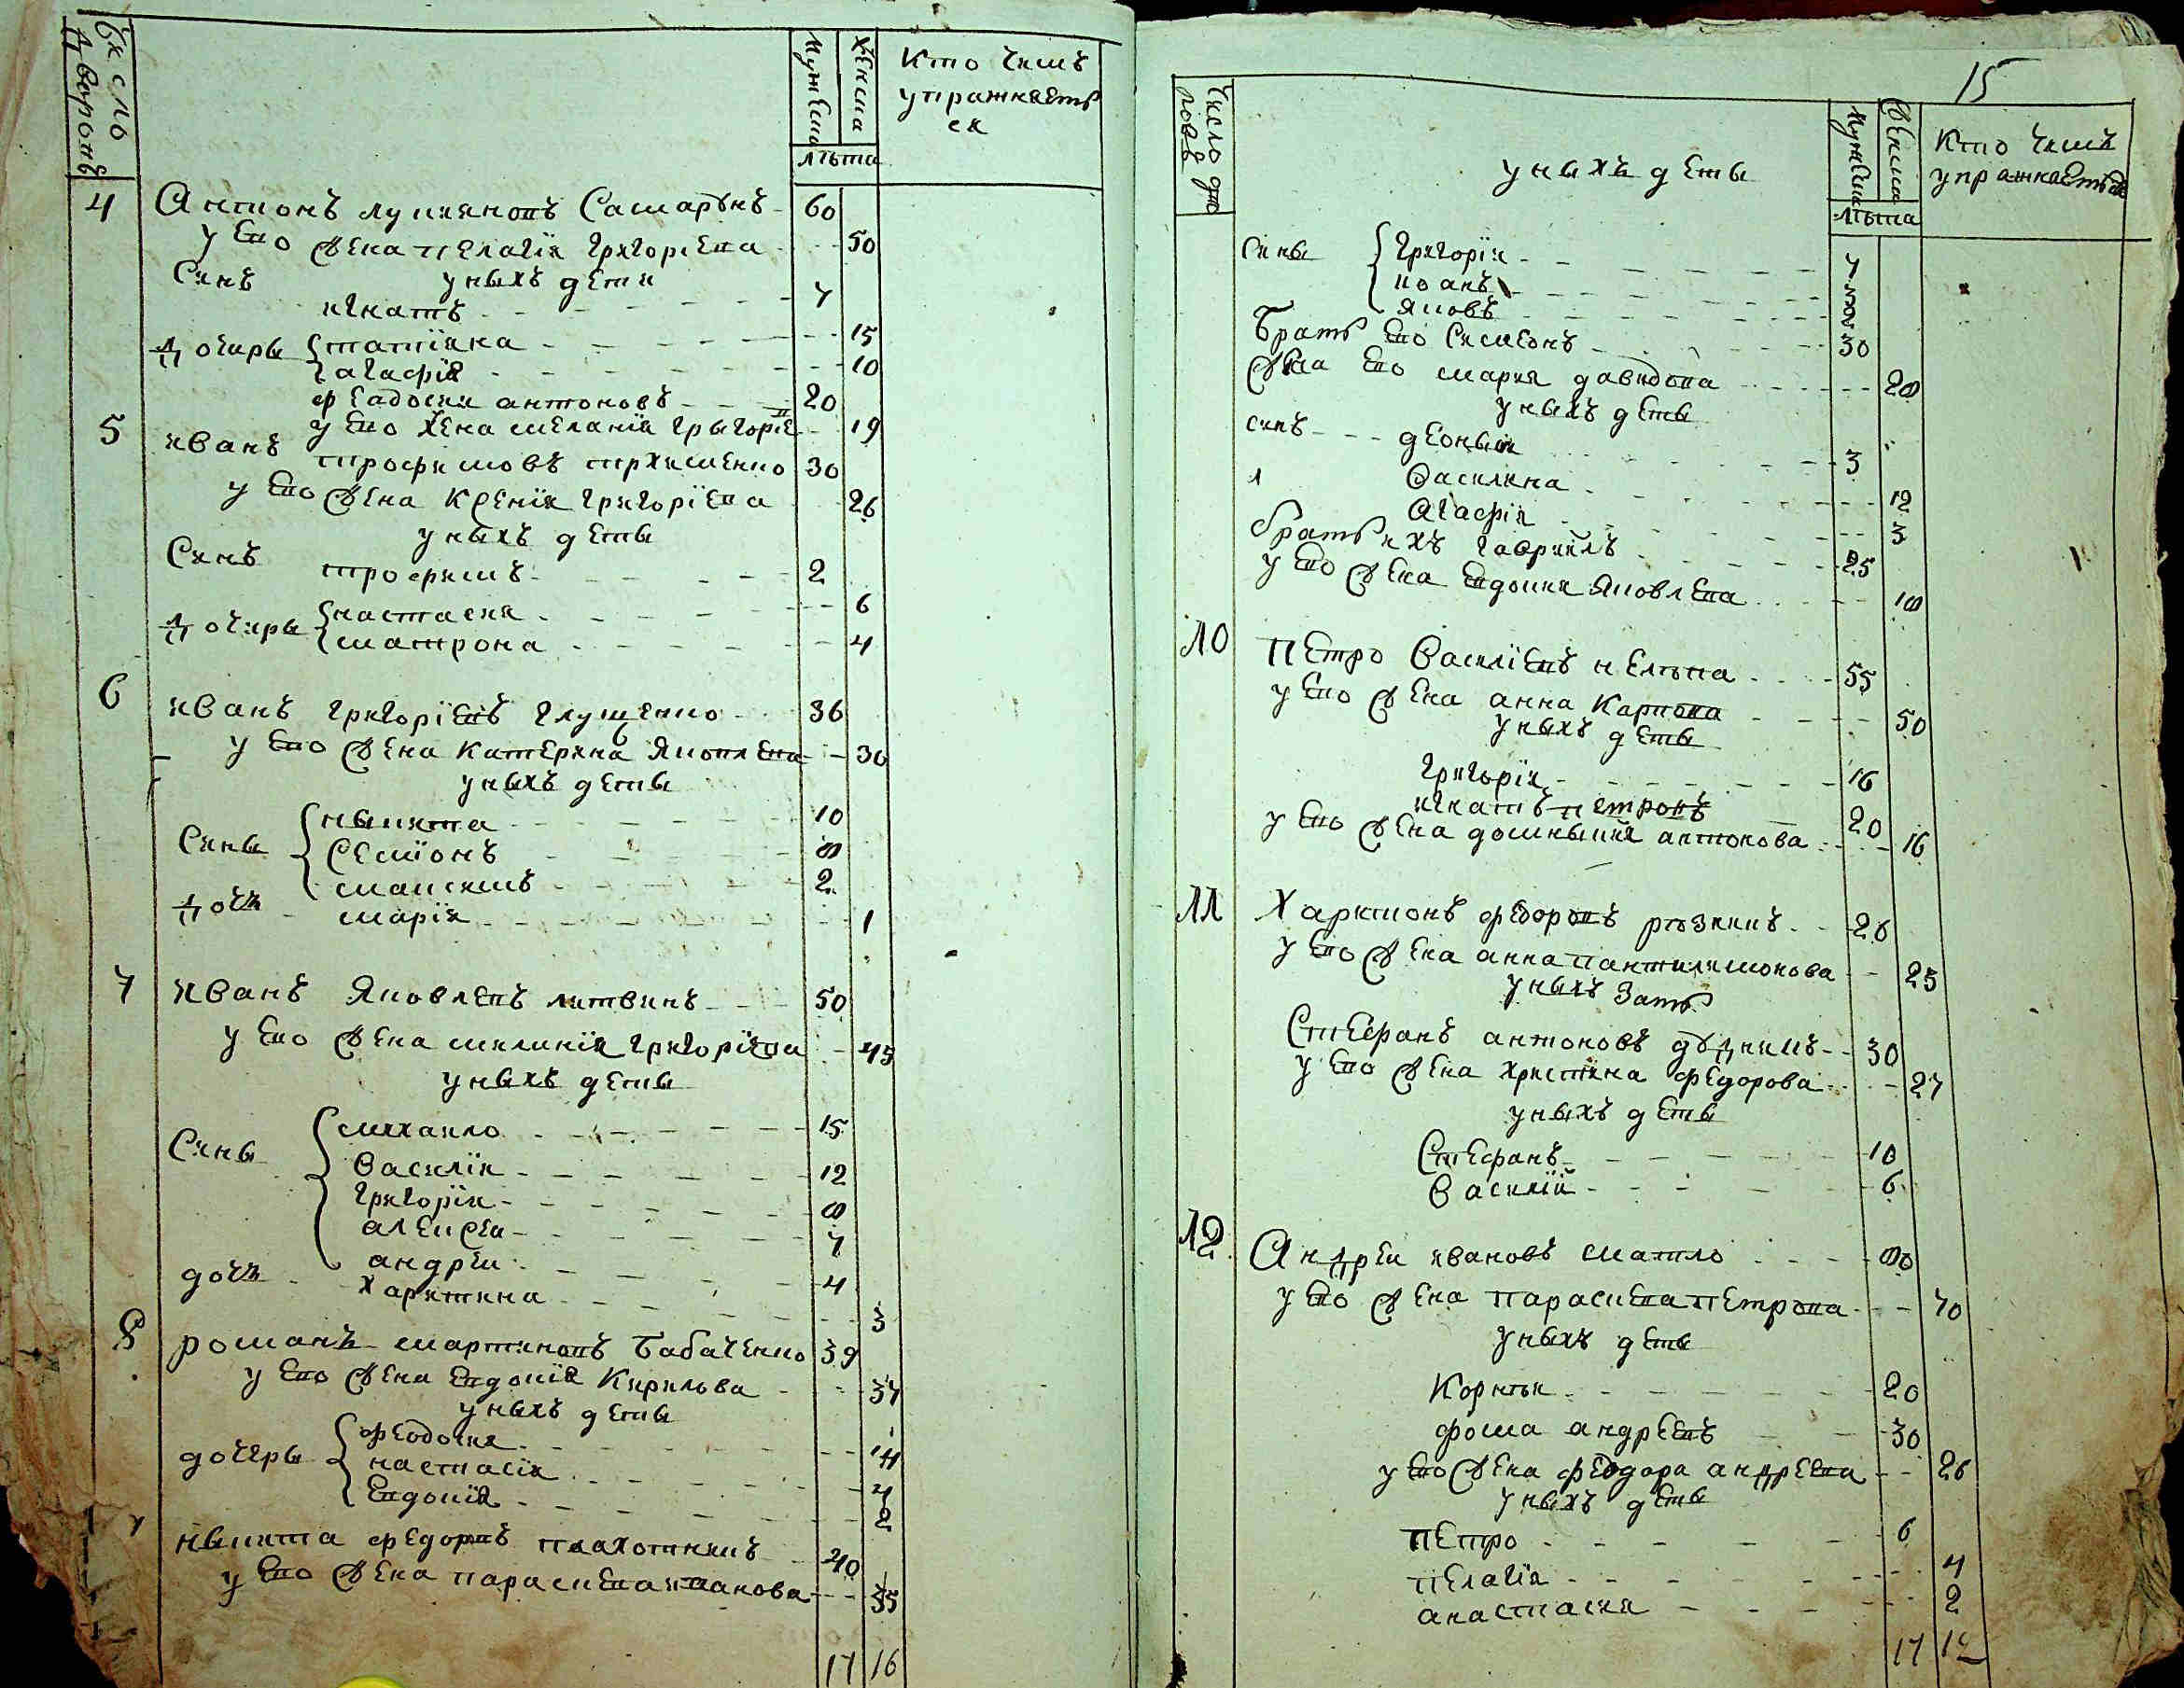 Число дворовъ
Мужеска
Женска
лѣта
Кто чемъ
упражняеть
ся
4 Антонъ лукяновъ Самарунъ 60
у его жена пелагія григоріева 50
Синъ у ныхъ дети
игнатъ 7
Дочиры татіяна 15
агафія 10
феодосии антоновъ 20
у его жена меланія грыгоріев 19
5 иванъ трофимовъ трхименко 30
у его жена Ксенія григоріева 26
у ныхъ деты
Синъ
трофимъ 2
Дочиры настасия 6
матрона 4
6 иванъ григоріевъ глущенко 36
у его жена Катерина яковлева 30
у ныхъ деты
ныкита 10
Сины Семіонъ 8
максимъ 2
Дочъ марія 1
7 иванъ яковлевъ литвинъ 50
у его жена милинія григоріева 45
у ныхъ деты
михаило 15
Сины
василіи 12
григоріи 8
алексеи 7
андреи 4
дочъ харитина 3
8 романъ мартиновъ Бабаченко 39
у его жена евдокія Кирилова 37
у ныхъ деты
феодосия 14
дочеры настасія 4
евдокія 2
ныкита федоровъ плахотникъ 40
у его жена параскева иванова 35
17 16
15
Число дво
ровъ
у ныхъ деты
Мужеска
Женска
лѣта
Кто чемъ
упражнаеться
Сины григоріи 7
иоанъ
яковъ
Братъ его Симеонъ 30
жена его мария давидова 20
у ныхъ деты
синъ деоныси 3
василина 12
агафія 3
братъ ихъ гавриилъ 25
у его жена евдокия яковлева 18
10 петро василіевъ нелѣпа 55
у его жена анна Карпова 50
у ныхъ деты
григоріи 16
игнатъ петровъ 20
у его жена домныкия антонова 16
11 Харитонъ федоровъ рѣзникъ 26
у его жена анна пантилимонова 25
у ныхъ зать
Стефанъ антоновъ дудникъ 30
у его жена христина федорова 27
у ныхъ деты
Стефанъ 10
василій 6
12 Андреи ивановъ матло 80
у его жена параскева петрова 70
у ныхъ деты
Корнѣи 20
фома андреевъ 30
у его жена феодора андреева 26
у ныхъ деты
петро 6
пелагія 4
анастасия 2
17